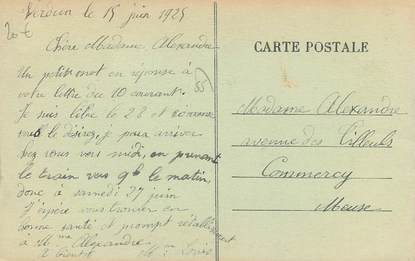 Verdun le 15 juin 1925
20€
Chère Madame Alexandre
Un petit mot en réponse à
votre lettre du 10 courant.
Je suis libre le 28 et
vous le désirez, je pourrai arriver
chez vous vers midi, en prenant
le train vers 9h le matin,
donc à samedi 27 juin
J'espère vous trouver en
bonne santé et prompt rétablissement
à Mme Alexandre.
A bientôt Mme Louis
CARTE POSTALE
Madame Alexandre
avenue des Tilleuls
Commercy
Meuse